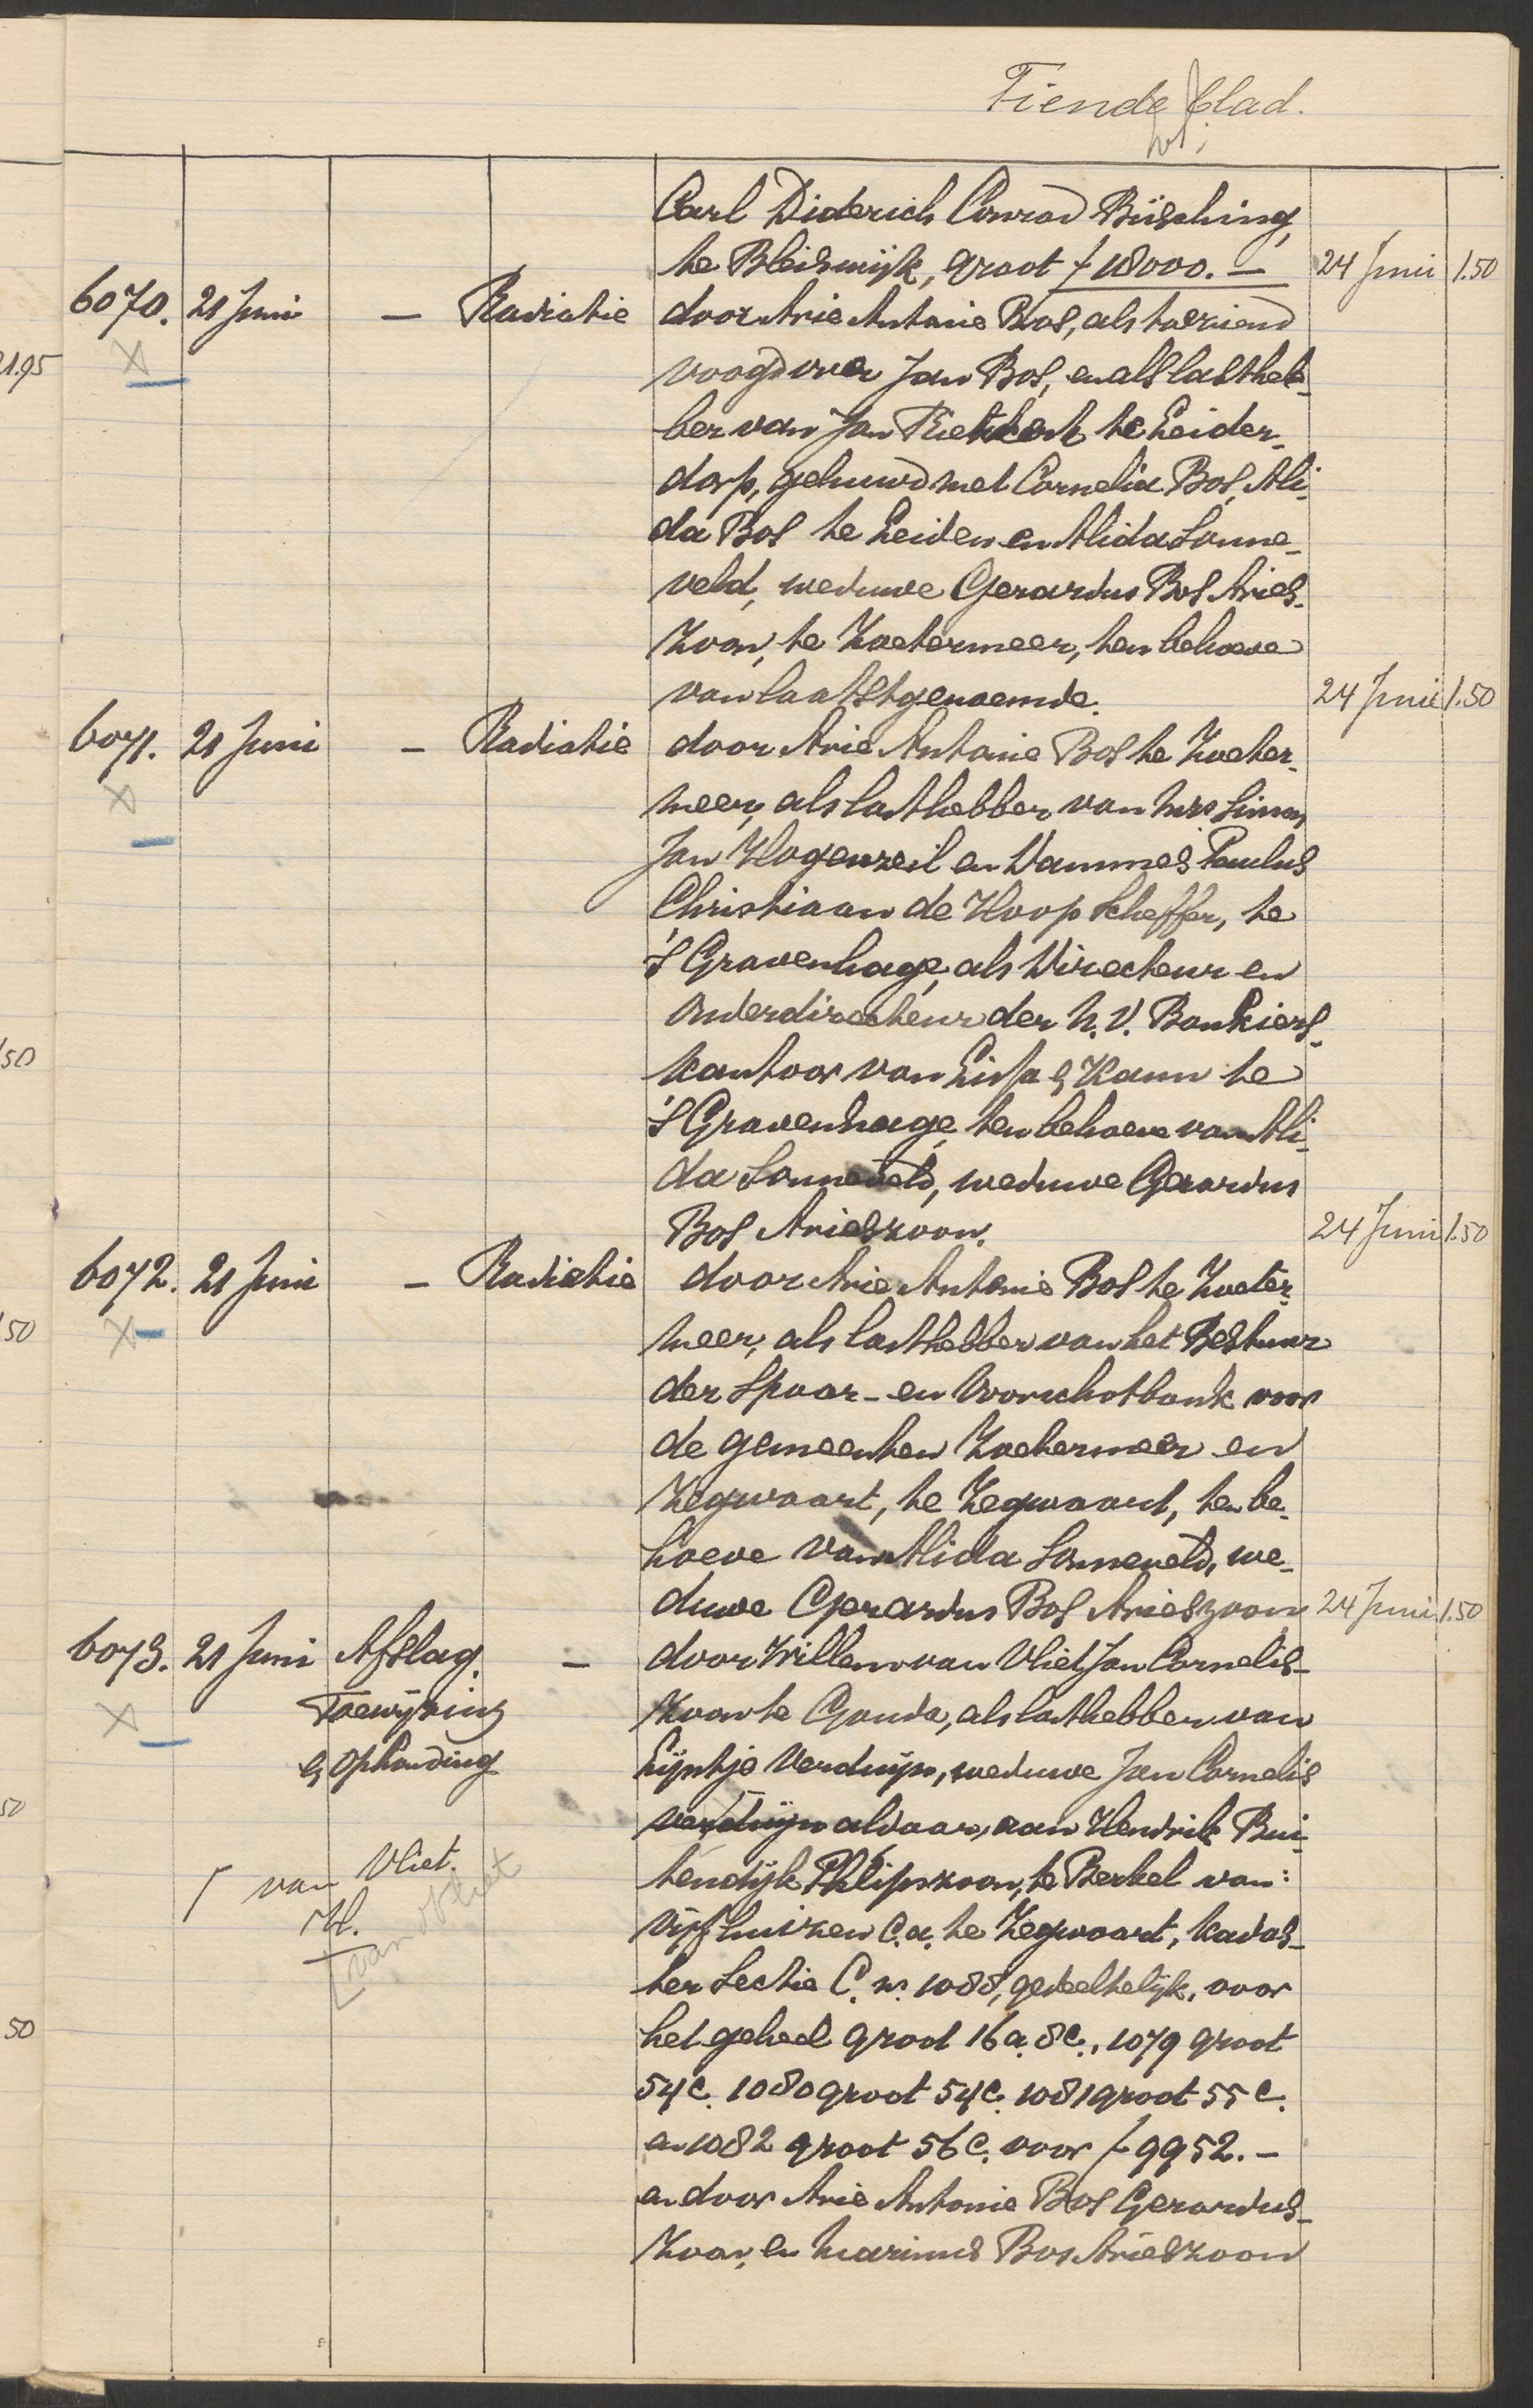 Tiende blad.
Carl Diderich Conrad Büsching,
te Bleiswijk, groot ƒ 18000.— 24 Juni 1.50
6070. 21 Juni — Radiatie door Arie Antonie Bos, als toeziend
21.95 voogd over Jan Bos, en als lastheb-
ber van Jan te Leider-
dorp, gehuwd met Cornelia Bos, Ali-
da Bos te Leiden en Alida Sonne-
veld, weduwe Gerardus Bos Aries-
zoon, te Zoetermeer, ten behoeve
van laatstgenoemde. 24 Juni 1.50
6071. 21 Juni — Radiatie door Arie Antonie Bos te Zoeter-
meer, als lasthebber van Mrs Simon
Jan Hogerzeil en Dammes Paulus
Christiaan de Hoop Scheffer, te
's Gravenhage, als Directeur en
Onderdirecteur der N.V. Bankiers-
50 kantoor van Lissa & Kann te
's Gravenhage, ten behoeve van Ali-
da Sonneveld, weduwe Gerardus
Bos Arieszoon. 24 Juni 1.50
6072. 21 Juni — Radiatie door Arie Antonie Bos te Zoeter-
50 meer, als lasthebber van het Bestuur
der Spaar- en Voorschotbank voor
de gemeenten Zoetermeer en
Zegwaart, te Zegwaard, ten be-
hoeve van Alida Sonneveld, we-
duwe Gerardus Bos Arieszoon 24 Juni 1.50
6073. 21 Juni Afslag. — door Willem van Vliet Jan Cornelis-
Toewijzing zoon te Gouda, als lasthebber van
& Ophouding Lijntje Verduijn, weduwe Jan Cornelis
50 verduijn aldaar, aan Hendrik Bui-
⌈ van Vliet. tendijk Philipszoon, te Berkel van:
H. vijf huizen c.a. te Zegwaart, kadas-
[van Vliet ter Sectie C. nr. 1088, gedeeltelijk, voor
50 het geheel groot 16 a. 8 c., 1079 groot
54 c. 1080 groot 54 c. 1081 groot 55 c.
en 1082 groot 56 c. voor ƒ 9952.—
en door Arie Antonie Bos Gerardus-
zoon, en Marinus Bos Arieszoon